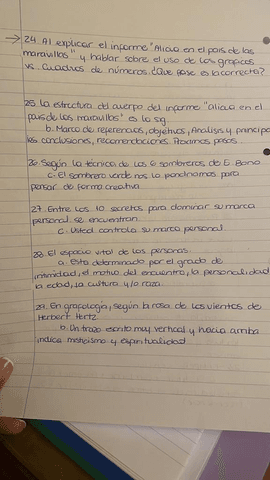 → 24. Al explicar el informe "Alicia en el país de las
maravillas" y hablar sobre el uso de los graficos
vs. Cuadros de números. ¿Que frase es la correcta?
25. La estructura del cuerpo del informe "Alicia en el
país de las maravillas" es la sig.
b. Marco de referencias, objetivos, Analisis y principa
les conclusiones, recomendaciones. Proximos pasos.
26. Según la técnica de los 6 sombreros de E. Bono
c. El sombrero verde nos lo pondríamos para
pensar de forma creativa
27. Entre los 10 secretos para dominar su marca
personal se encuentran
c. Usted controla su marca personal
28. El espacio vital de las personas.
a. Esta determinado por el grado de
intimidad, el motivo del encuentro, la personalidad
la edad, la cultura y/o raza.
29. En grafología, según la rosa de los vientos de
Herbert Hertz.
b. Un trazo escrito muy vertical y hacia arriba
indica misticismo y espiritualidad